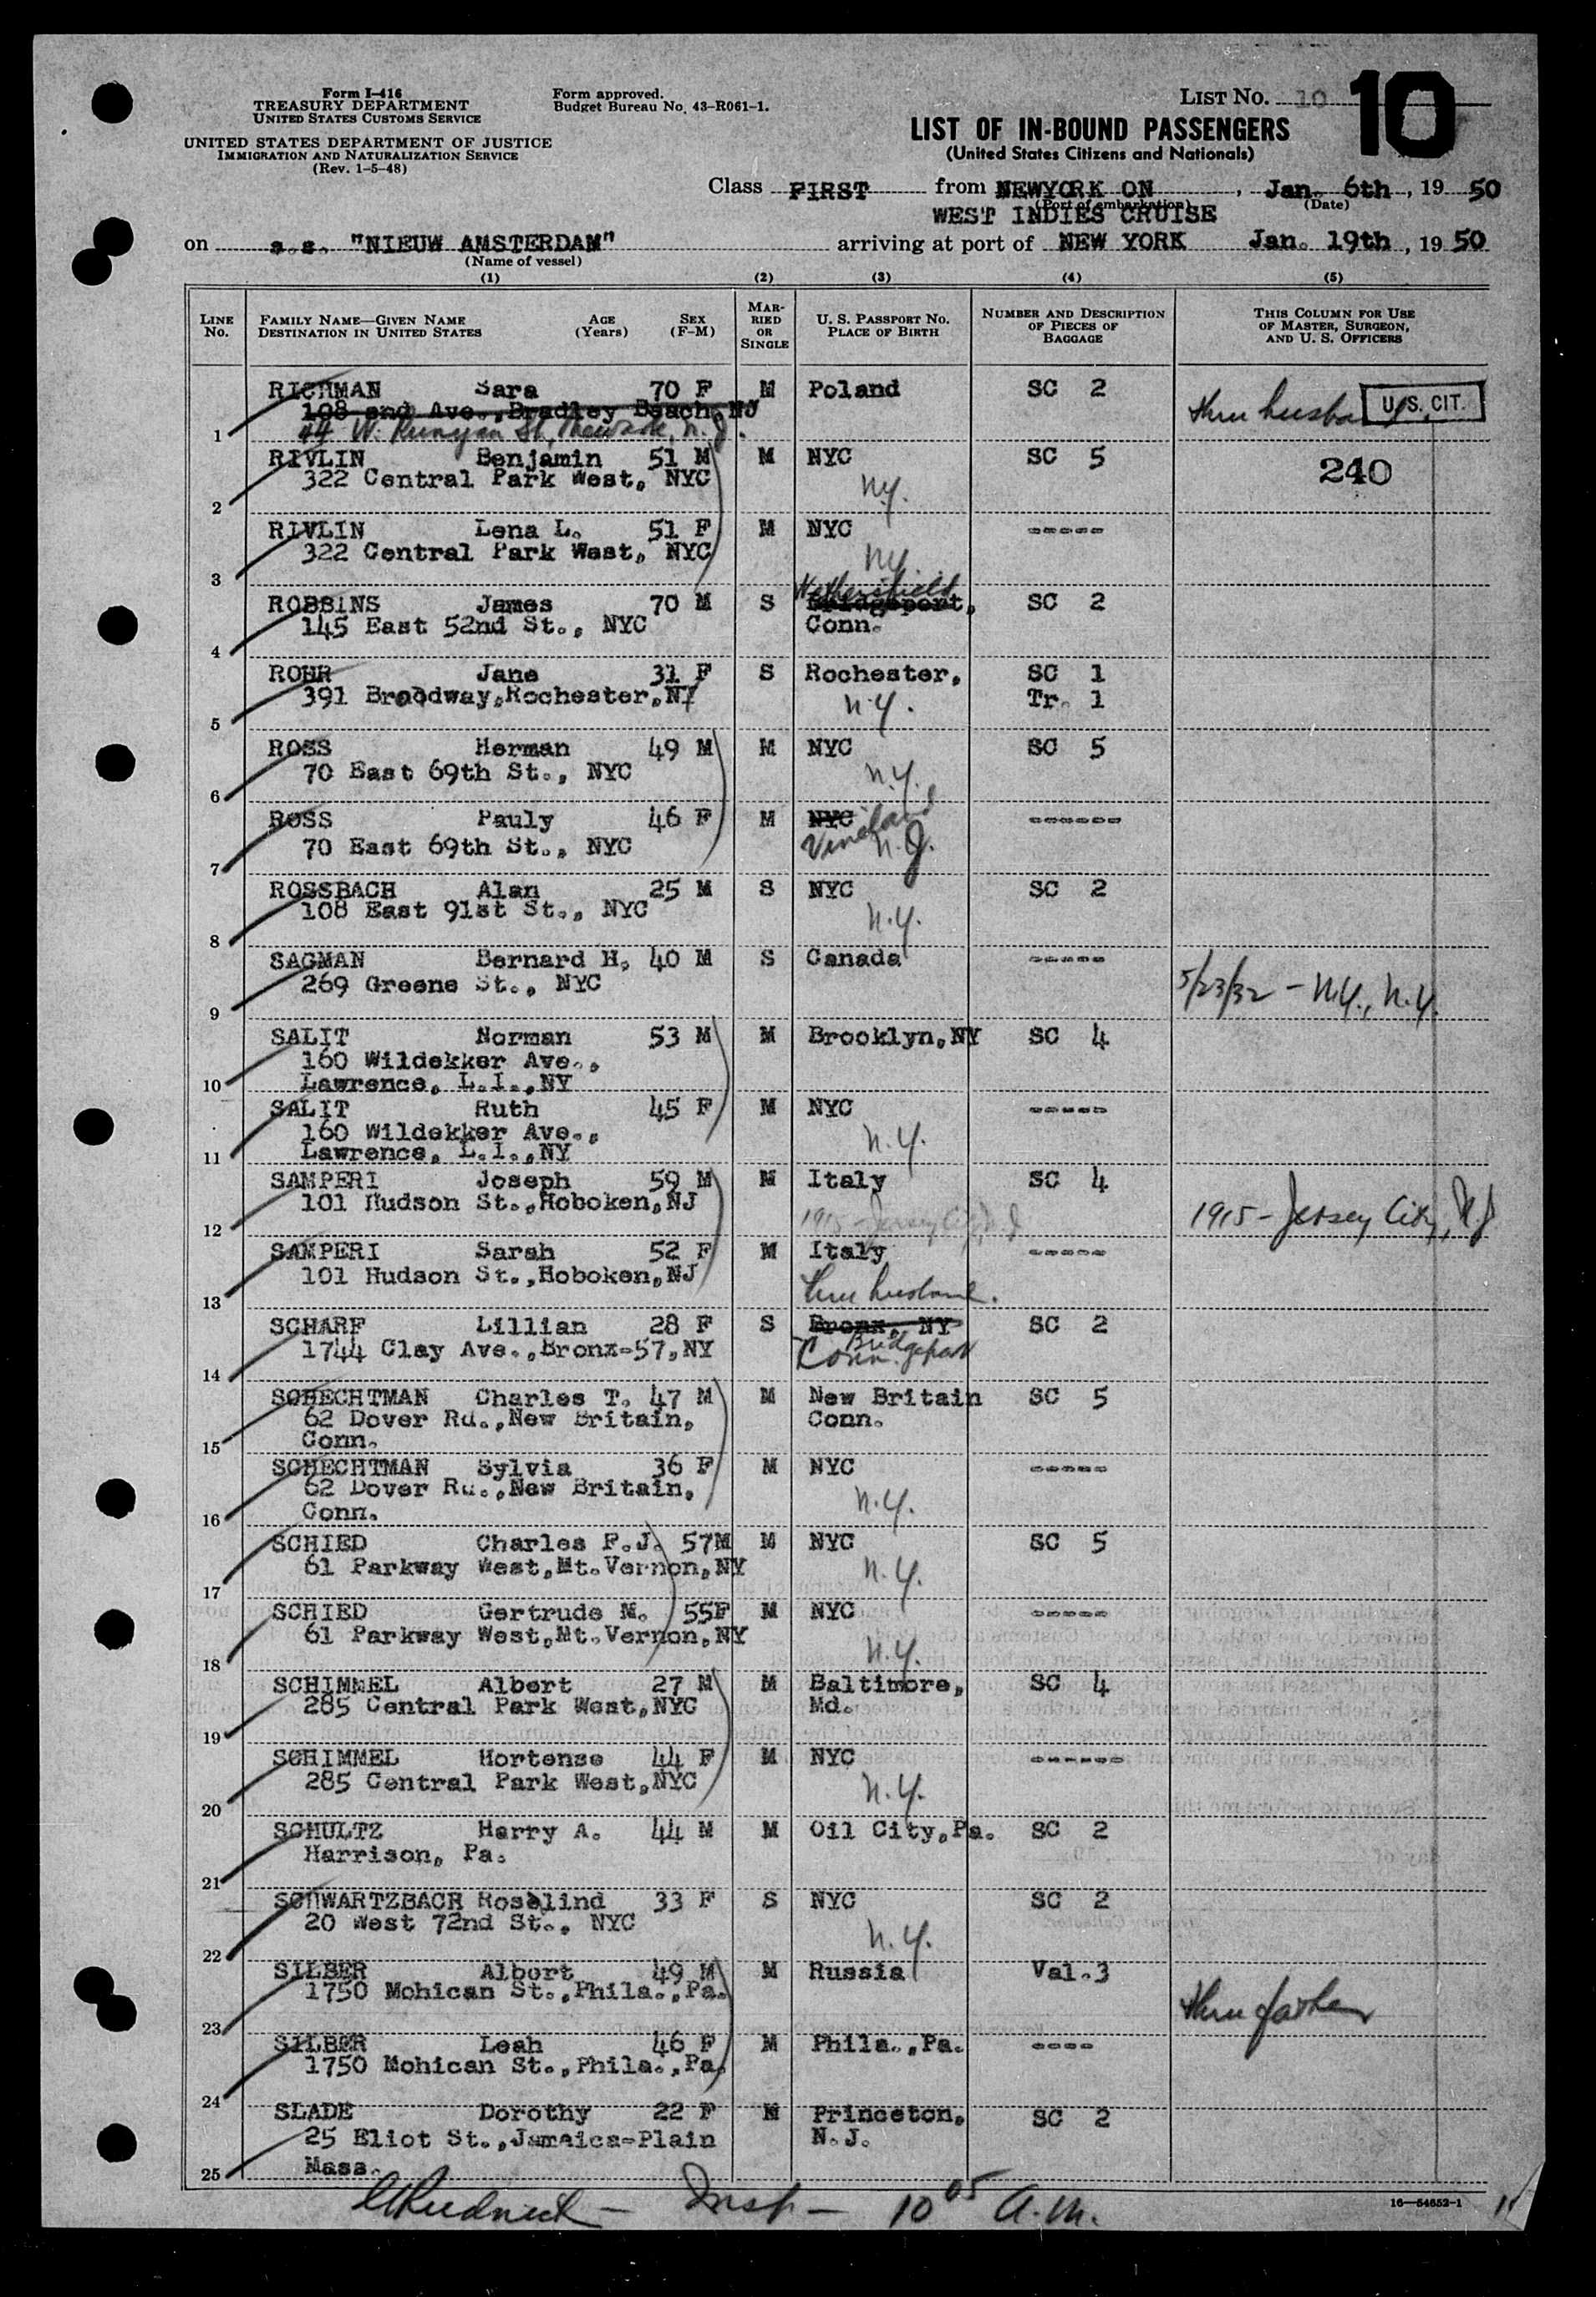 Form I-416
TREASURY DEPARTMENT
UNITED STATES CUSTOMS SERVICE
UNITED STATES DEPARTMENT OF JUSTICE
IMMIGRATION AND NATURALIZATION SERVICE
(Rev. 1-5-48)
Form approved.
Budget Bureau No. 43-R061-1.
LIST NO. 10
10
LIST OF IN-BOUND PASSENGERS
(United States Citizens and Nationals)
Class FIRST from NEWYORK ON, Jan. 6th, 19 50
(Port of embarkation) (Date)
WEST INDIES CRUISE
on s.s. "NIEUW AMSTERDAM" arriving at port of NEW YORK Jan. 19th, 19 50
(Name of vessel)
(1) (2) (3) (4) (5)
LINE No. FAMILY NAME—GIVEN NAME DESTINATION IN UNITED STATES AGE (Years) SEX (F-M) MARRIED OR SINGLE U. S. PASSPORT NO. PLACE OF BIRTH NUMBER AND DESCRIPTION OF PIECES OF BAGGAGE THIS COLUMN FOR USE OF MASTER, SURGEON, AND U. S. OFFICERS
RICHMAN Sara 70 F M Poland SC 2
108 2nd Ave., Bradley Beach, NJ thru husband U.S. CIT.
1 44 W. Runyon St, Newark, N.J.
RIVLIN Benjamin 51 M M NYC SC 5 240
322 Central Park West, NYC N.Y.
2
RIVLIN Lena L. 51 F M NYC -----
322 Central Park West, NYC N.Y.
3 Wethersfield
ROBBINS James 70 M S Bridgeport, SC 2
145 East 52nd St., NYC Conn.
4
ROHR Jane 31 F S Rochester, SC 1
391 Broadway,Rochester,NY N.Y. Tr. 1
5
ROSS Herman 49 M M NYC SC 5
70 East 69th St., NYC N.Y.
6
ROSS Pauly 46 F M NYC ------
70 East 69th St., NYC Vineland N.J.
7
ROSSBACH Alan 25 M S NYC SC 2
108 East 91st St., NYC N.Y.
8
SAGMAN Bernard H. 40 M S Canada -----
269 Greene St., NYC 5/23/32 - N.Y., N.Y.
9
SALIT Norman 53 M M Brooklyn,NY SC 4
160 Wildekker Ave.,
10 Lawrence, L.I.,NY
SALIT Ruth 45 F M NYC -----
160 Wildekker Ave., N.Y.
11 Lawrence, L.I.,NY
SAMPERI Joseph 59 M M Italy SC 4
101 Hudson St.,Hoboken,NJ 1915 - Jersey City, N.J. 1915 - Jersey City, N.J.
12
SAMPERI Sarah 52 F M Italy -----
101 Hudson St.,Hoboken,NJ thru husband.
13
SCHARF Lillian 28 F S Bronx, NY SC 2
1744 Clay Ave.,Bronx-57,NY Bridgeport Conn.
14
SCHECHTMAN Charles T. 47 M M New Britain SC 5
62 Dover Rd.,New Britain, Conn.
15 Conn.
SCHECHTMAN Sylvia 36 F M NYC -----
62 Dover Rd.,New Britain, N.Y.
16 Conn.
SCHIED Charles F.J. 57M M NYC SC 5
61 Parkway West,Mt.Vernon,NY N.Y.
17
SCHIED Gertrude M. 55F M NYC -----
61 Parkway West,Mt.Vernon,NY N.Y.
18
SCHIMMEL Albert 27 M M Baltimore, SC 4
285 Central Park West,NYC Md.
19
SCHIMMEL Hortense 44 F M NYC ------
285 Central Park West,NYC N.Y.
20
SCHULTZ Harry A. 44 M M Oil City,Pa. SC 2
Harrison, Pa.
21
SCHWARTZBACH Roselind 33 F S NYC SC 2
20 West 72nd St., NYC N.Y.
22
SILBER Albert 49 M M Russia Val.3
1750 Mohican St.,Phila.,Pa. thru father
23
SILBER Leah 46 F M Phila.,Pa. ----
1750 Mohican St.,Phila.,Pa.
24
SLADE Dorothy 22 F M Princeton, SC 2
25 Eliot St.,Jamaica-Plain N.J.
25 Mass.
Insp - 10 05 A.M.
16—54652-1